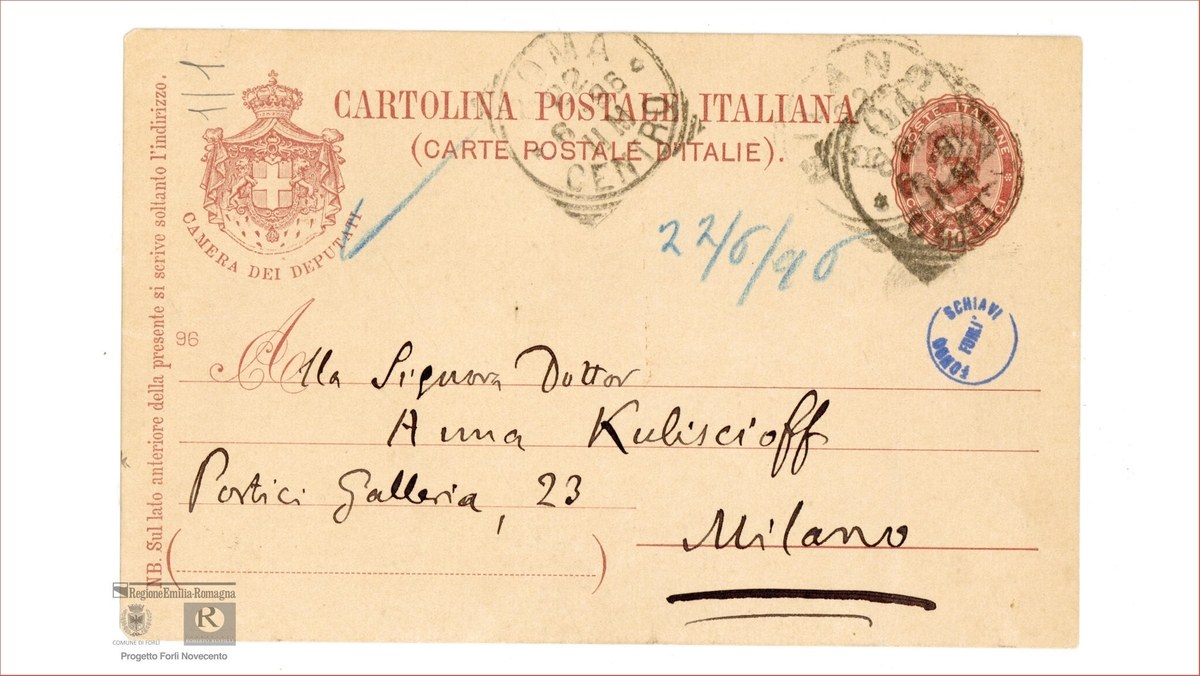 1/1
CARTOLINA POSTALE ITALIANA
(CARTE POSTALE D'ITALIE).
CAMERA DEI DEPUTATI
NB. Sul lato anteriore della presente si scrive soltanto l'indirizzo.
ROMA
CENTRO
22/6/96
POSTE ITALIANE
SCHIAVI
FORLI'
FONDO
96
Alla Signora Dottor
Anna Kuliscioff
Portici Galleria, 23
Milano
RegioneEmilia-Romagna
R
COMUNE DI FORLÌ
Progetto Forlì Novecento